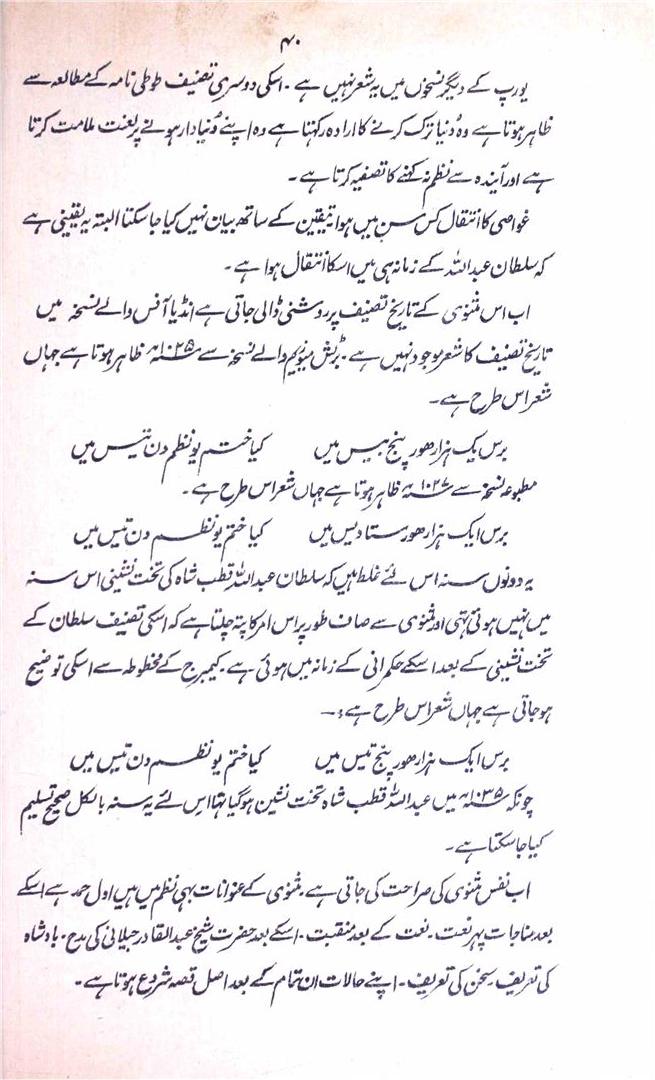 ۴۰
یورپ کے دیگر نسخوں میں یہ شعر نہیں ہے ۔ اسکی دوسری تصنیف طوطی نامہ کے مطالعہ سے
ظاہر ہوتا ہے وہ دنیا ترک کرنے کا ارادہ رکہتا ہے وہ اپنے دُنیا دار ہونے پر لعنت ملامت کرتا
ہے اور آیندہ سے نظم نہ کہنے کا تصفیہ کرتا ہے ۔
غواصی کا انتقال کس سن میں ہوا تیقین کے ساتھ بیان نہیں کیا جا سکتا البتہ یہ یقینی ہے
کہ سلطان عبداللہ کے زمانہ ہی میں اسکا انتقال ہوا ہے ۔
اب اس مثنوی کے تاریخ تصنیف پر روشنی ڈالی جاتی ہے انڈیا آفس والے نسخہ میں
تاریخ تصنیف کا شعر موجود نہیں ہے ۔ برٹش میوزیم والے نسخہ سے ۱۰۲۵ھ ظاہر ہوتا ہے جہاں
شعر اس طرح ہے ۔
برس یک ہزار ھور پنج بیس میں کیا ختم یو نظم دن تیس میں
مطبوعہ نسخہ سے ۱۰۲۷ھ ظاہر ہوتا ہے جہاں شعر اس طرح ہے ۔
برس ایک ہزار ھور ستا دیس میں کیا ختم یو نظم دن تیس میں
یہ دونوں سنہ اس لئے غلط ہیں کہ سلطان عبداللہ قطب شاہ کی تخت نشینی اس سنہ
میں نہیں ہوئی تہی اور مثنوی سے صاف طور پر اس امر کا پتہ چلتا ہے کہ اسکی تصنیف سلطان کے
تخت نشینی کے بعد اسکے حکمرانی کے زمانہ میں ہوئی ہے ۔ کیمبرج کے مخطوطہ سے اسکی توضیح
ہو جاتی ہے جہاں شعر اس طرح ہے :۔
برس ایک ہزار ھور پنج تیس میں کیا ختم یو نظم دن تیس میں
چونکہ ۱۰۳۵ھ میں عبداللہ قطب شاہ تخت نشین ہو گیا تہا اس لئے یہ سنہ بالکل صحیح تسلیم
کیا جا سکتا ہے ۔
اب نفس مثنوی کی صراحت کی جاتی ہے ۔ مثنوی کے عنوانات بہی نظم میں ہیں اول حمد ہے اسکے
بعد مناجات پہر نعت ۔ نعت کے بعد منقبت ۔ اسکے بعد حضرت شیخ عبدالقادر جیلانی کی مدح ۔ بادشاہ
کی تعریف ۔ سخن کی تعریف ۔ اپنے حالات ان تمام کے بعد اصل قصہ شروع ہوتا ہے ۔